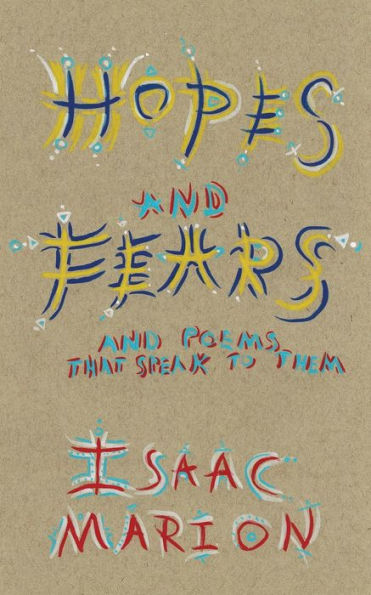 HOPES
AND
FEARS
AND POEMS
THAT SPEAK TO THEM
ISAAC
MARION